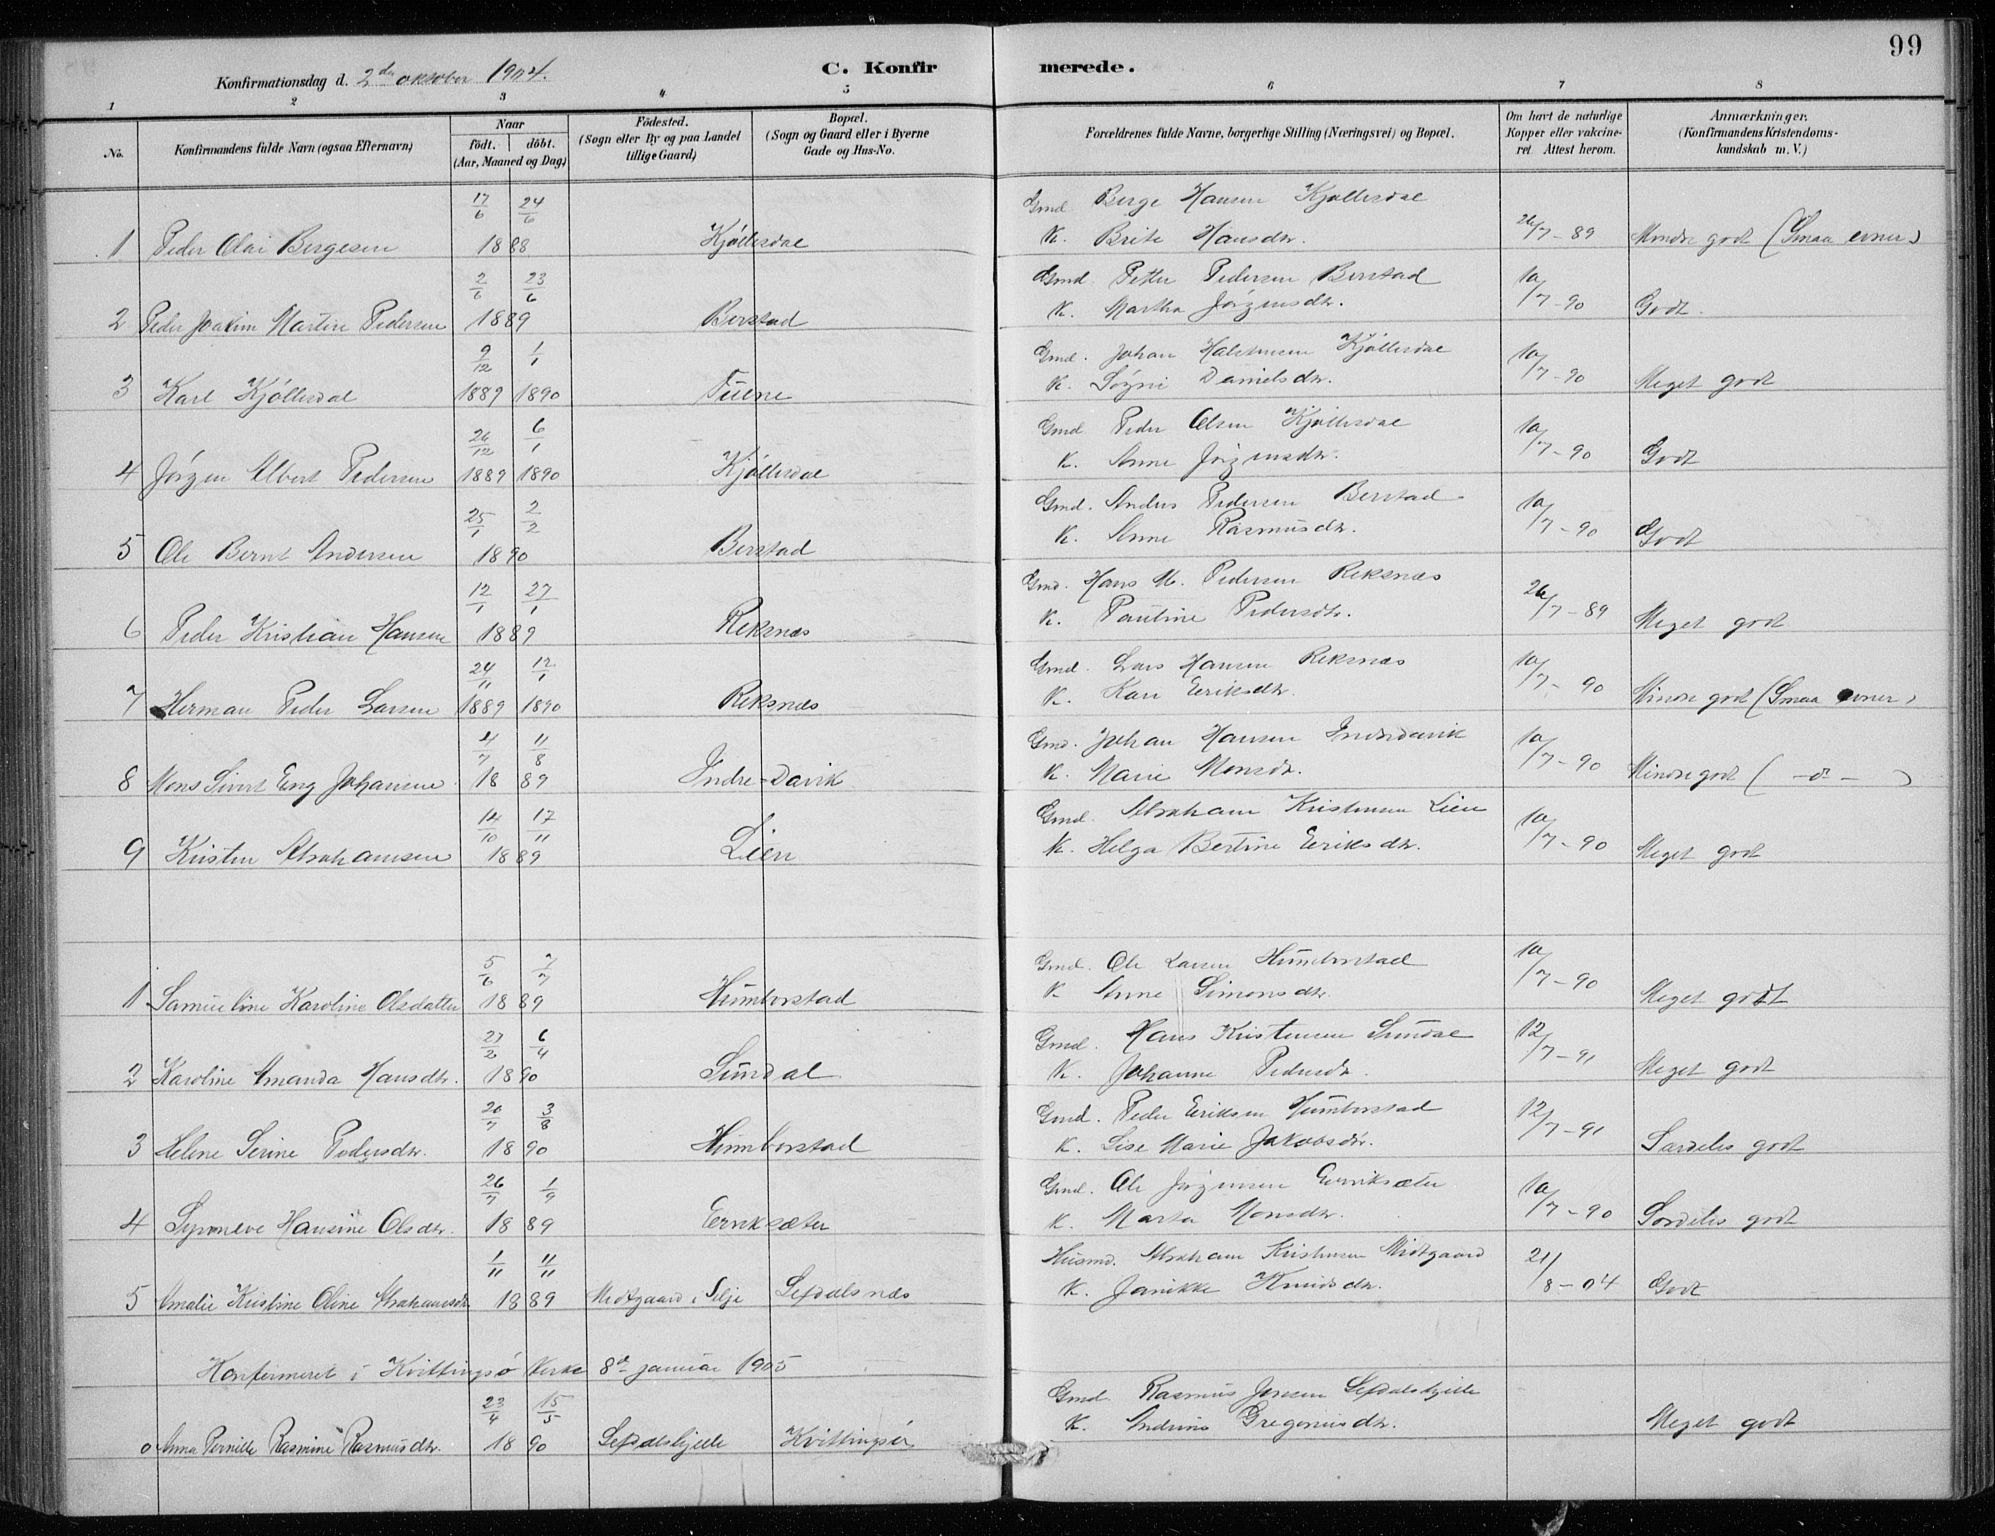 99
Konfirmationsdag d. 2den oktober 1904.
C. Konfirmerede.
1 2 3 4 5 6 7 8
No.
Konfirmandens fulde Navn (ogsaa Efternavn)
Naar
født. døbt.
(Aar, Maaned og Dag)
Födested.
(Sogn eller By og paa Landet
tillige Gaard)
Bopæl.
(Sogn og Gaard eller i Byerne
Gade og Hus-No.
Forældrenes fulde Navne, borgerlige Stilling (Næringsvei) og Bopæl.
Om havt de naturlige
Kopper eller vakcine-
ret. Attest herom.
Anmærkninger.
(Konfirmandens Kristendoms-
kundskab m. V.)
17/6 24/6 Gmd. Berge Hansen Kjöllesdal
1 Peder Olai Bergesen 1888 Kjöllesdal K. Brite Hansdtr. 26/7-89 Mindre godt (Smaa evner)
2/6 23/6 Gmd. Petter Pedersen Berstad
2 Peder Joakim Martin Pedersen 1889 Berstad K. Martha Jörgensdtr. 10/7-90 Godt.
9/12 1/1 Gmd. Johan Halstensen Kjöllesdal
3 Karl Kjöllesdal 1889 1890 K. Sögni Danielsdtr. 10/7-90 Meget godt
26/12 6/1 Gmd. Peder Olsen Kjöllesdal
4 Jörgen Albert Pedersen 1889 1890 Kjöllesdal K. Anne Jörgensdtr. 10/7-90 Godt
25/1 2/2 Gmd. Anders Pedersen Berstad
5 Ole Bernt Andersen 1890 Berstad K. Anne Rasmusdtr. 10/7-90 Godt
12/1 27/1 Gmd. Hans M. Pedersen Reksnæs
6 Peder Kristian Hansen 1889 Reksnæs K. Pauline Pedersdtr. 26/7-89 Meget godt
24/11 12/1 Gmd. Lars Hansen Reksnæs
7 Herman Peder Larsen 1889 1890 Reksnæs K. Kari Eeriksdtr. 10/7-90 Mindre godt (Smaa evner)
4/7 11/8 Gmd. Johan Hansen Indredavik
8 Mons Sivert Eng Johansen 1889 Indre-Davik K. Marie Monsdtr. 10/7-90 Mindre godt ( -o- )
14/10 17/11 Gmd. Abraham Kristensen Lien
9 Kristen Abrahamsen 1889 Lien K. Helga Bertine Eeriksdtr. 10/7-90 Meget godt
5/6 7/7 Gmd. Ole Larsen Humborstad
1 Samueline Karoline Olsdatter 1889 Humborstad K. Anne Simonsdtr. 10/7-90 Meget godt
27/2 6/4 Gmd. Hans Kristensen Sundal
2 Karoline Amanda Hansdtr. 1890 Sundal K. Johanne Pedersdtr. 12/7-91 Meget godt
20/7 3/8 Gmd. Peder Eeriksen Humborstad
3 Helene Serine Pedersdtr. 1890 Humborstad K. Lise Marie Jakobsdtr. 12/7-91 Særdeles godt
26/7 1/9 Gmd. Ole Jörgensen Eeriksæter
4 Synneve Hansine Olsdtr. 1889 Eeriksæter K. Marta Monsdtr. 10/7-90 Særdeles godt
1/11 11/11 Husmd. Abraham Kristensen Midtgaard
5 Amalie Kristine Oline Abrahamsdtr 1889 Midtgaard i Selje Lefdalsnæs K. Janikke Knudsdtr. 21/8-04 Godt
Konfirmeret i Kvittingsö Kirke 8de januar 1905
23/4 15/5 Gmd. Rasmus Jensen Lefdalshjelle
0 Anna Pernille Rasmine Rasmusdtr. 1890 Lefdalshjelle Kvittingsö K. Andrine Gregoriusdtr. Meget godt